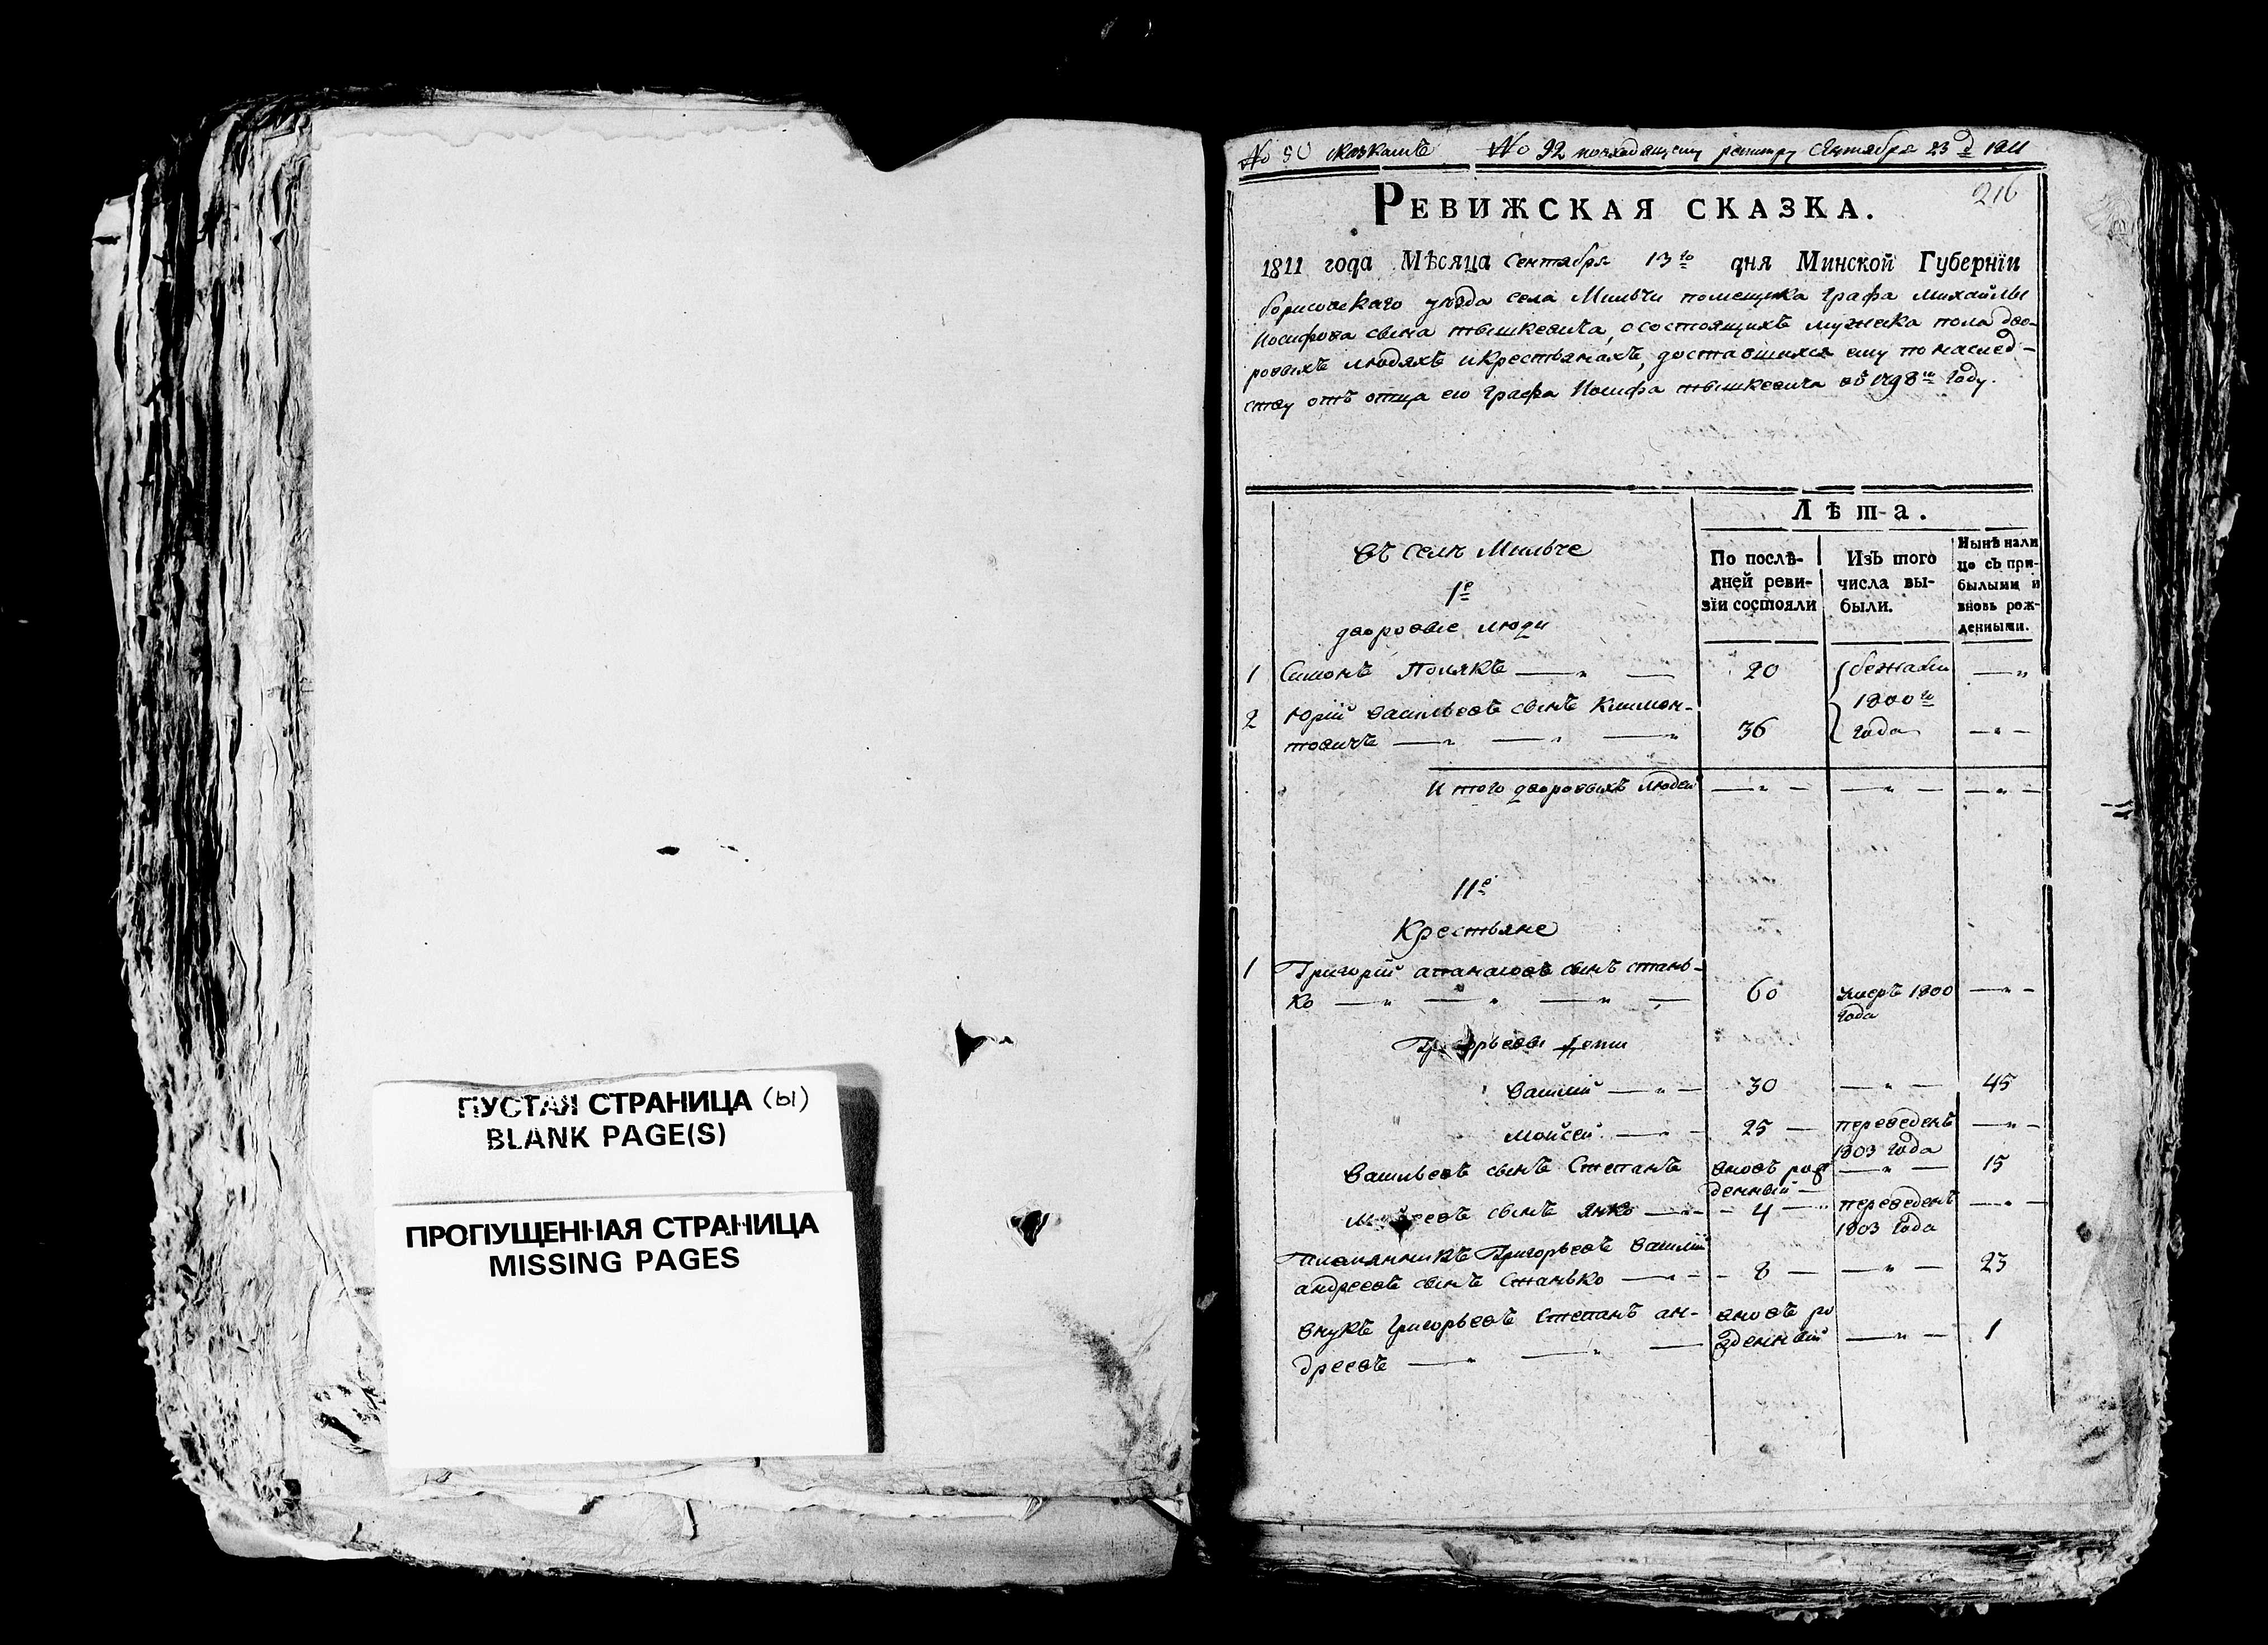 ПУСТАЯ СТРАНИЦА (ы)
BLANK PAGE(S)
ПРОПУЩЕННАЯ СТРАНИЦА
MISSING PAGES
No 90 No 92 Сентября 23 д 1811
216
РЕВИЖСКАЯ СКАЗКА.
1811 года Мѣсяца Сентября 13го дня Минской Губернїи
Борисовскаго уѣзда села Мильчи помещика Графа Михайлы
Иосифова сына тышкевича, осостоящихъ мужеска пола дво-
ровыхъ людяхъ икрестьянахъ, доставшихся ему понаслед-
ству отъ отца его Графа Иосифа тышкевича въ 1798м Году.
Лѣта.
По послѣ-
дней реви-
зїи состояли
Изъ того
числа вы-
были.
Нынѣ нали
цо съ при-
былыми и
вновь рож-
денными.
въ селѣ Мильче
1е
дворовые люди
1 Симонъ Полякъ — " — 20 бежали — "
2 Юрїй васильевъ сынъ Климон- 1800го
товичъ — " — " — " 36 года — " —
Итого дворовыхъ людей — " — — " — — " —
11е
Крестьяне
1 Григорїй апанасовъ сынъ стань-
ко — " — " — " — 60 умеръ 1800 — " —
года
Григорьевы дети
василїй — " — 30 — " — 45
мойсей — " — 25 — переведенъ — " —
1803 года
васильевъ сынъ Степанъ вновь рож — " — 15
денный —
Мойсеевъ сынъ Янко — " — 4 — переведенъ — " —
1803 года
племянникъ Григорьевъ василїй
андреевъ сынъ Станько — " — 8 — — " — 23
внукъ Григорьевъ Степанъ ан- вновь ро
дреевъ — " — " — жденный — " — 1